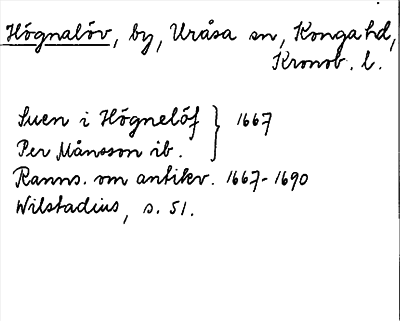 Högnalöv, by, Uråsa sn, Konga hd,
Kronob. l.
Suen i Högnelöf } 1667
Per Månsson ib.
Ranns. om antikv. 1667-1690
Wilstadius, s. 51.